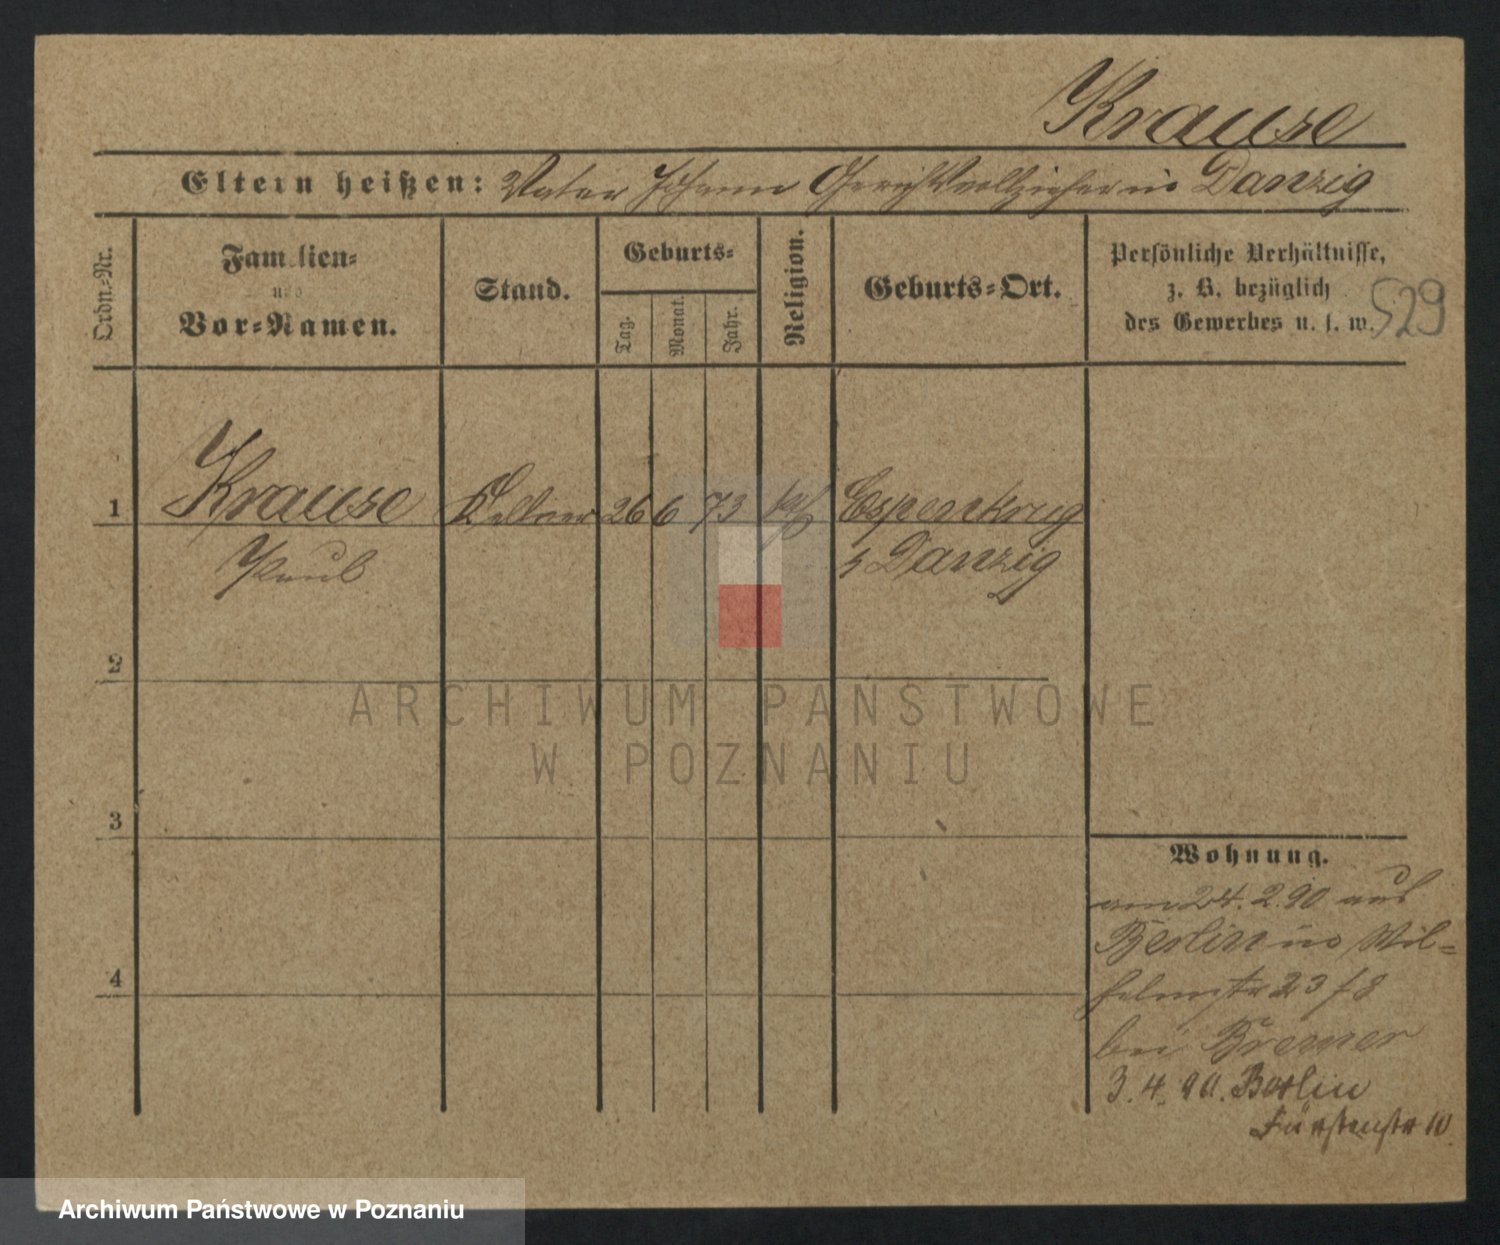 Krause
Eltern heißen: Vater Johann Gerichtsvollzieher in Danzig
Ordn.-Nr.
Familien-
und
Vor-Namen.
Stand.
Geburts-
Tag.
Monat.
Jahr.
Religion.
Geburts-Ort.
Persönliche Verhältnisse,
z. B. bezüglich
des Gewerbes u. s. w.
529
1 Krause Kellner 26 6 73 kath Espenkrug
Paul
Danzig
2
ARCHIWUM PAŃSTWOWE
W POZNANIU
3
Wohnung.
am 24.2.90 aus
Berlin in Wil-
helmstr 23
4
bei Bremer
3.4.90. Berlin
Fürstenstr 10
Archiwum Państwowe w Poznaniu